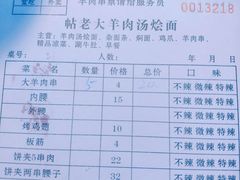 外卖
羊肉串烦请招服务员
0013218
帖老大羊肉汤烩面
主营：羊肉汤烩面、杂面条、焖面、鸡爪、羊肉串
精品凉菜、涮牛肚、早餐
桌号： 人数： 年 月 日
菜 名 数量 价格 口 味
大羊肉串 5 4 不辣 微辣 特辣
内腰 15 不辣 微辣 特辣
外腰 不辣 微辣 特辣
烤鸡翅 10 不辣 微辣 特辣
板筋 4 不辣 微辣 特辣
饼夹5串肉 22 不辣 微辣 特辣
饼夹两串腰子 32 不辣 微辣 特辣